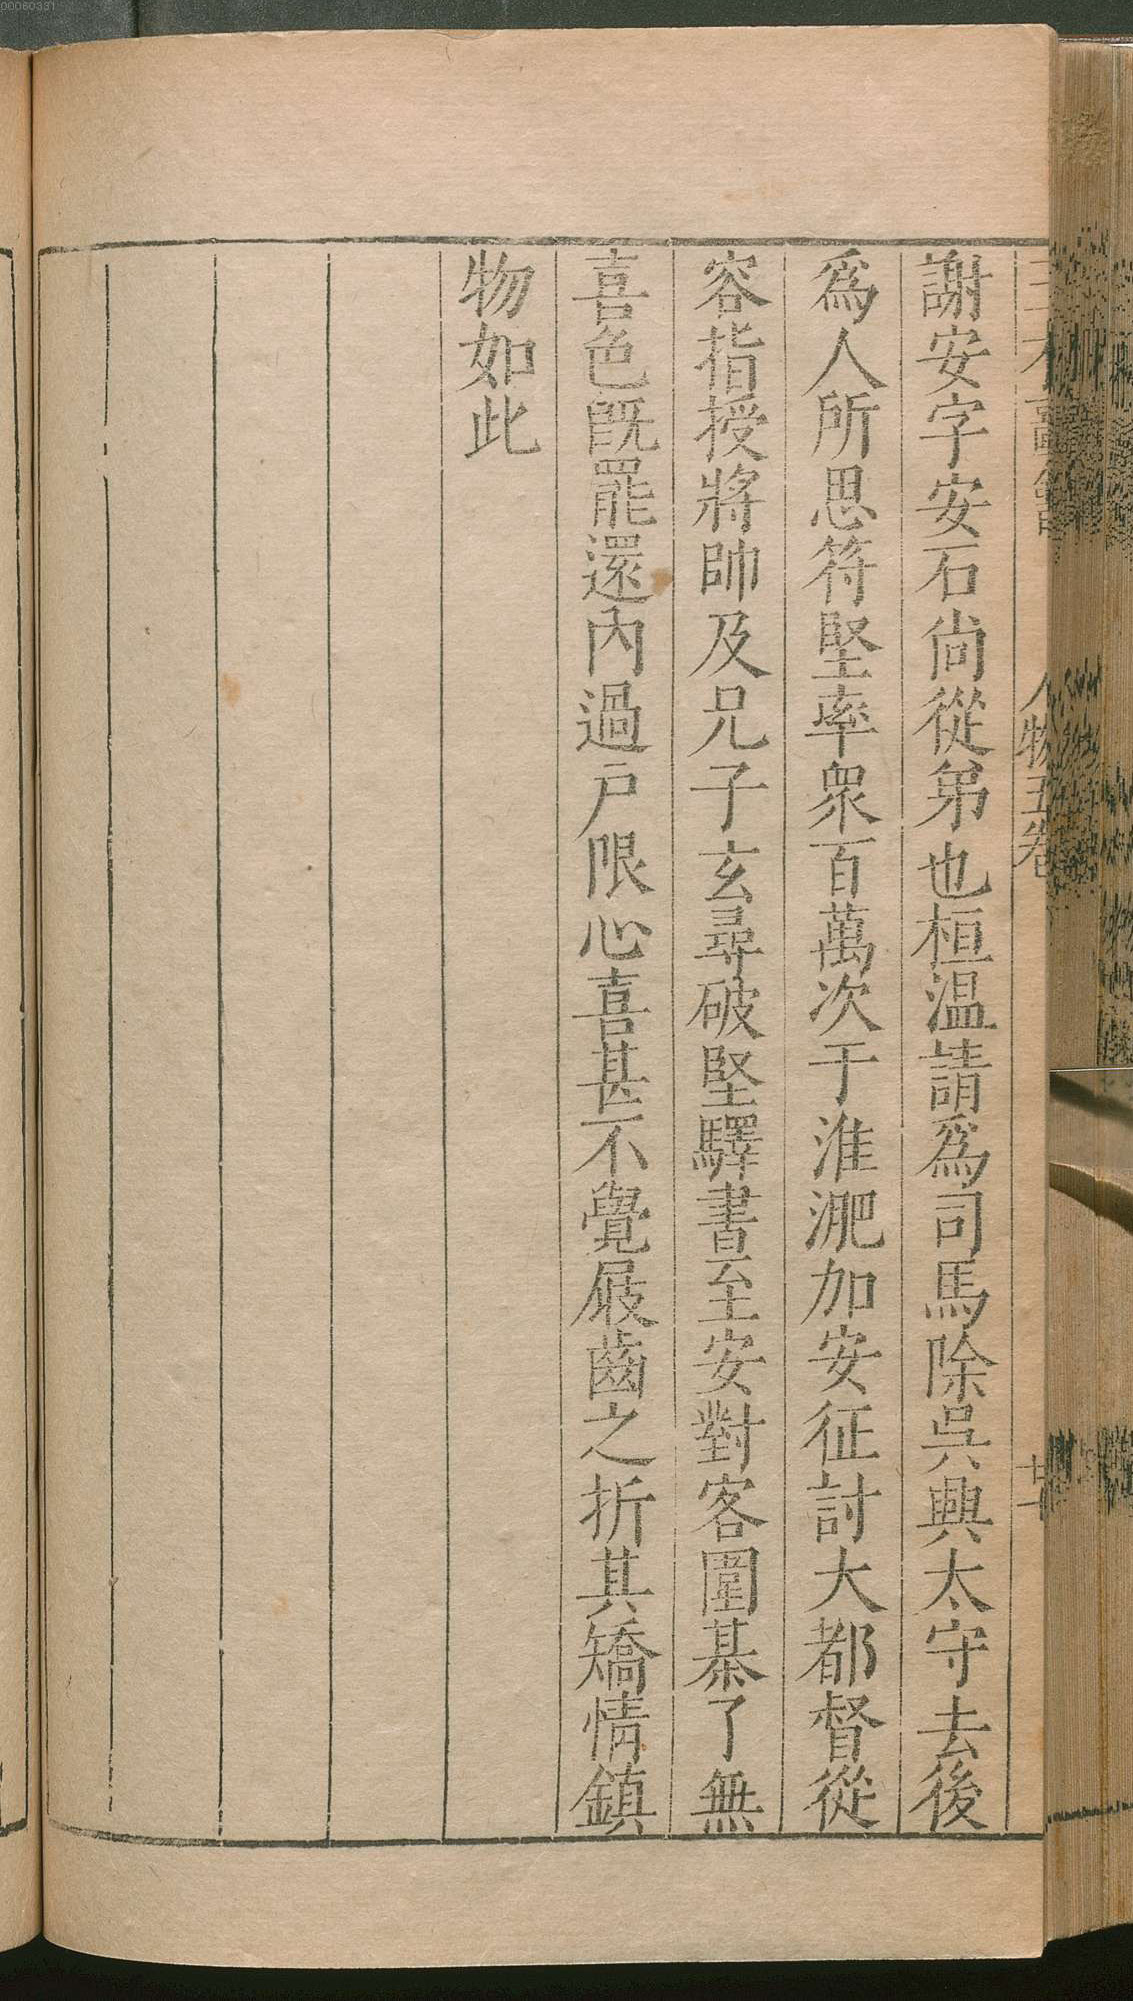 謝安字安石尙從弟也桓温請爲司馬除吳興太守去後
爲人所思符堅率衆百萬次于淮淝加安征討大都督從
容指授將帥及兄子玄尋破堅驛書至安對客圍棊了無
喜色旣罷還內過戸限心喜甚不覺屐齒之折其矯情鎮
物如此
人物五卷
00060331